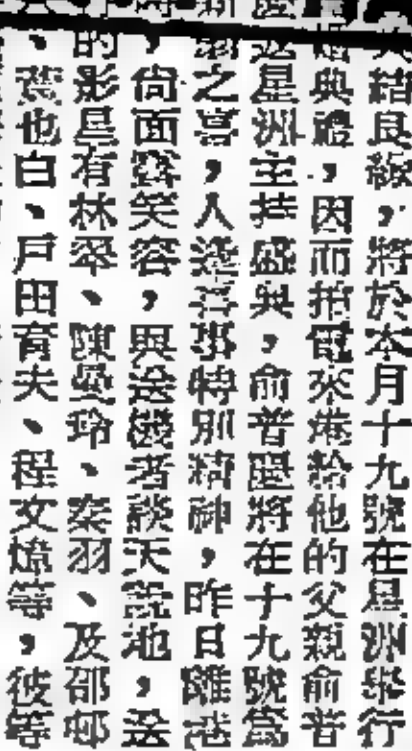 結良緣，將於本月十九號在星洲舉行
婚典禮，因而拍電來港給他的父親俞普
星洲主持盛典，俞普慶將在十九號爲
之喜，人逢喜事特別精神，昨日離港
，尙面露笑容，與送機者談天說地，送
的影星有林翠、陳曼玲、秦羽、及邵邨
、黃也白、戸田育夫、程文燎等，彼等